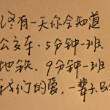 没有一天你会知道
公交车：5分钟一班
地铁：9分钟一班
我们的爱：一辈子